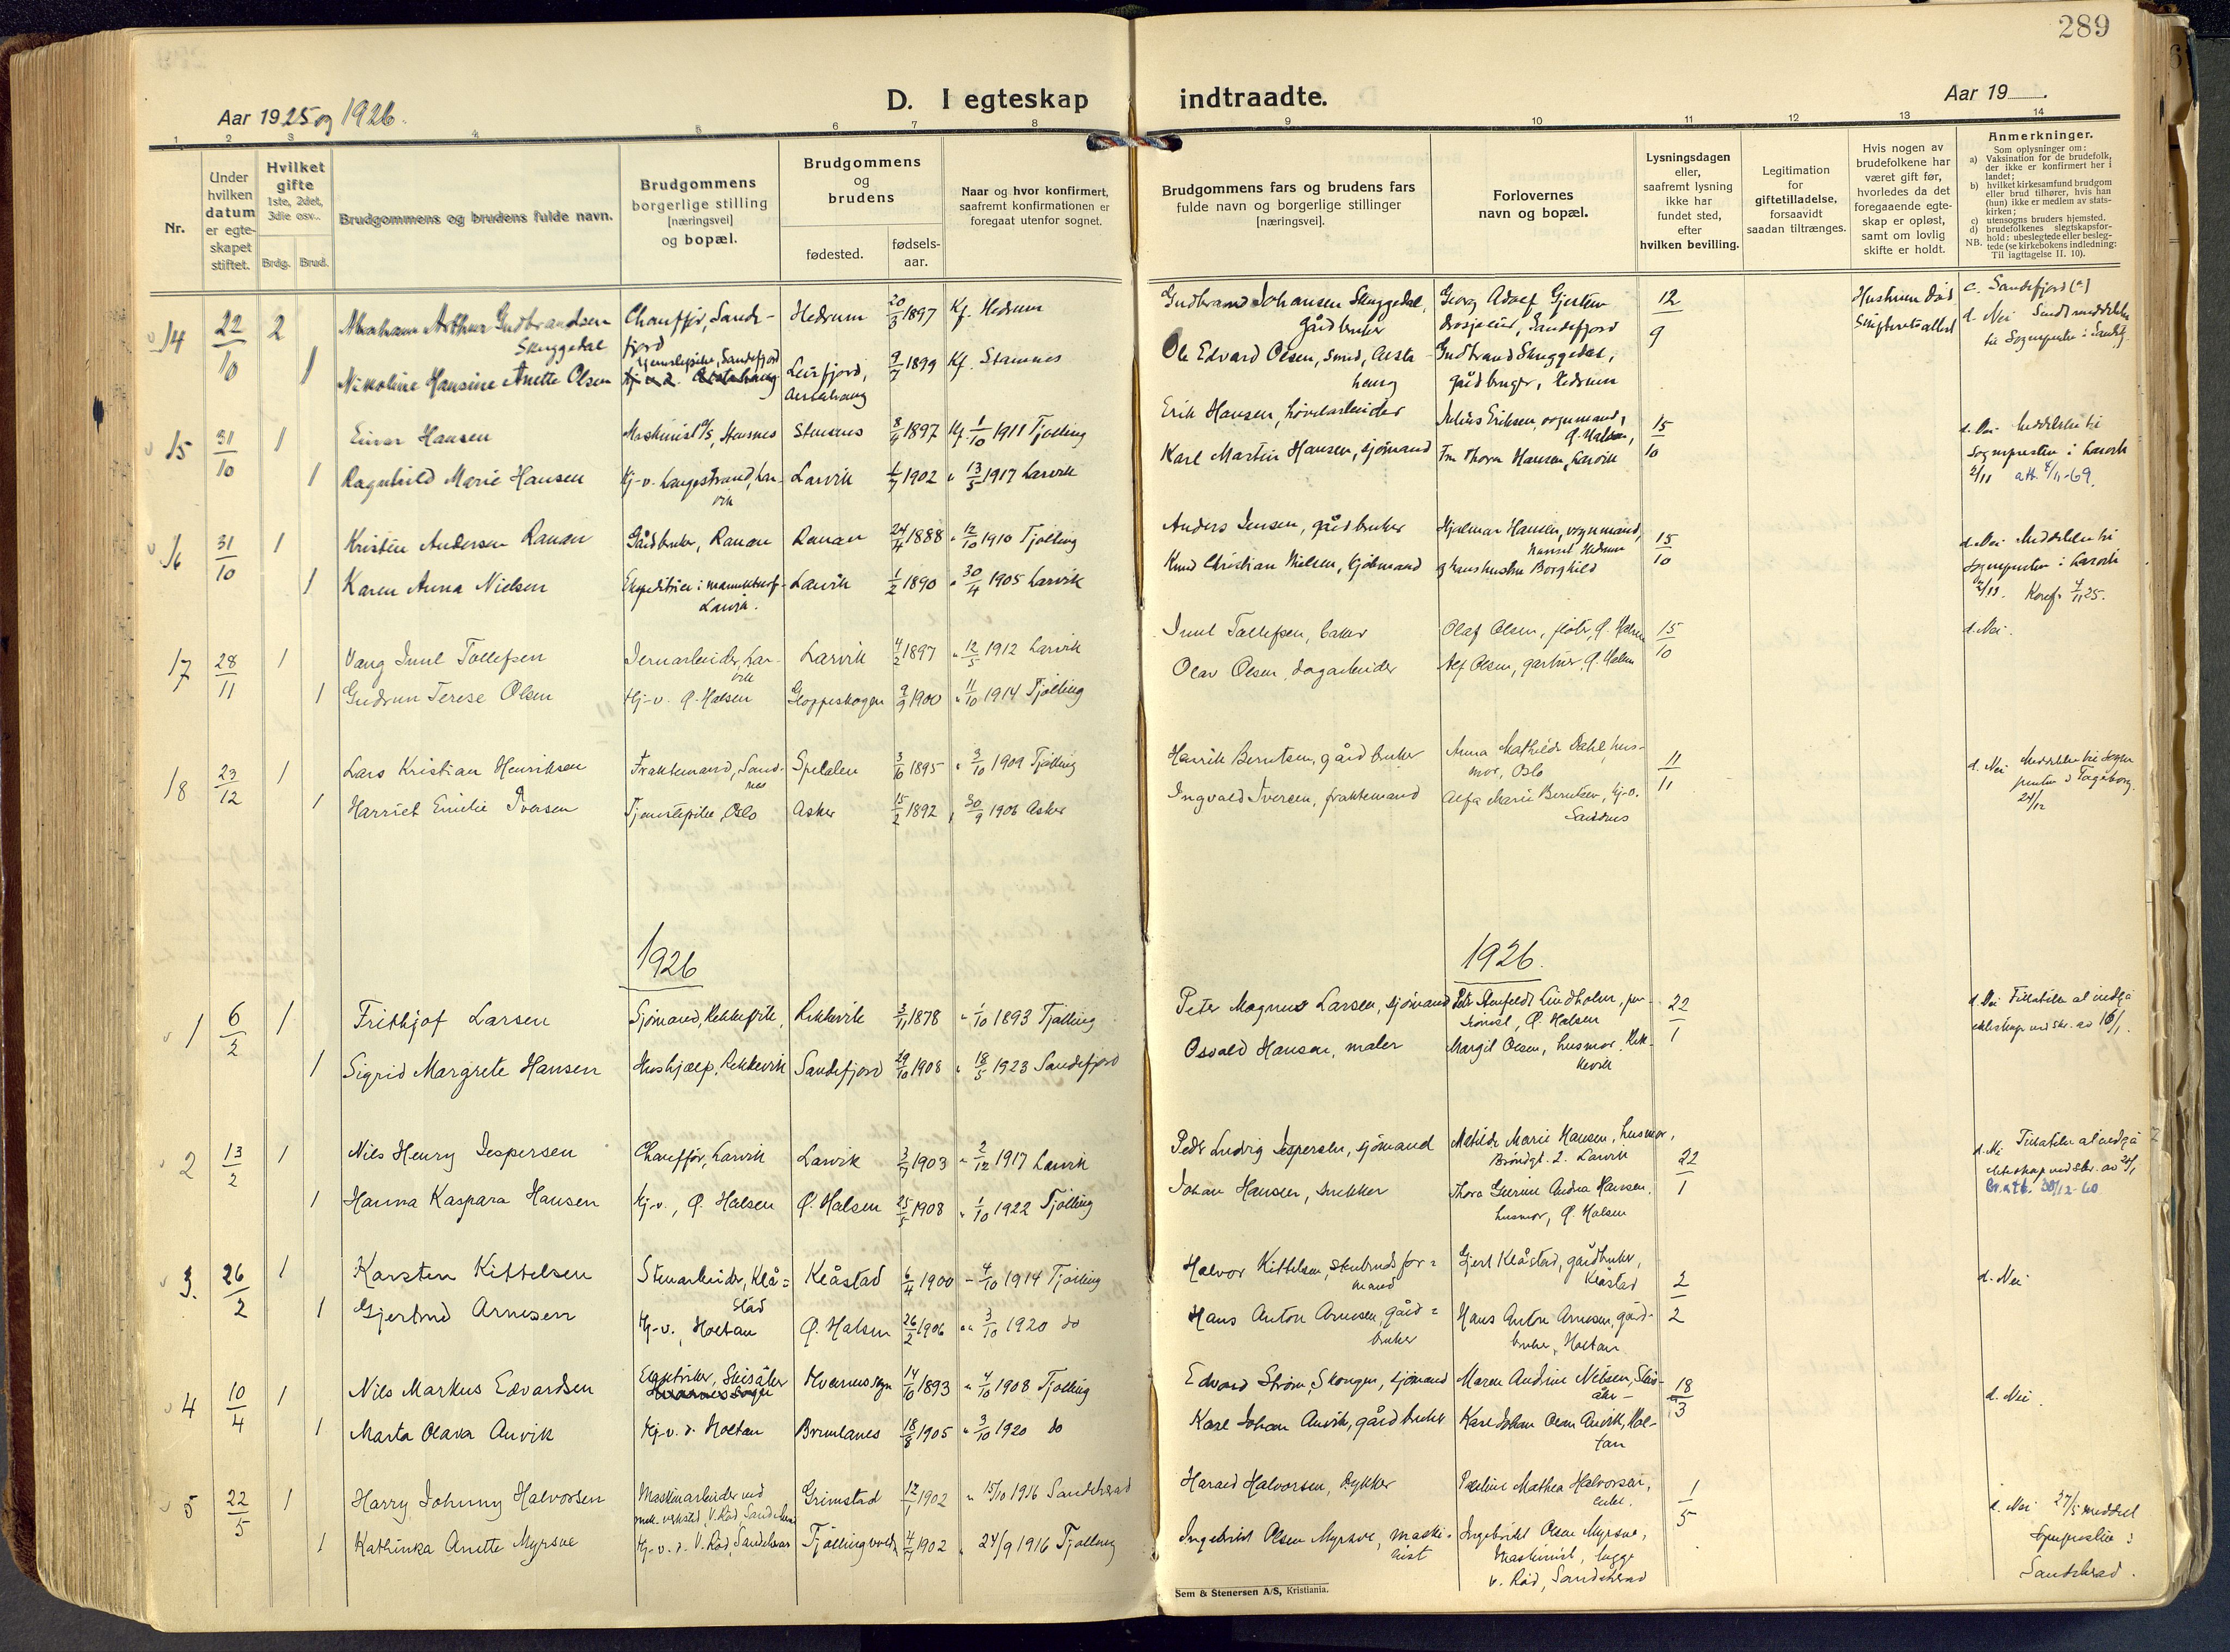 289
Aar 1925 og 1926.
D. I egteskap indtraadte.
Aar 19
1 2 3 4 5 6 7 8 9 10 11 12 13 14
Nr.
Under hvilken datum er egteskapet stiftet.
Hvilket gifte 1ste, 2det, 3die osv..
Brdg. Brud.
Brudgommens og brudens fulde navn.
Brudgommens borgerlige stilling [næringsvei] og bopæl.
Brudgommens og brudens
fødested.
fødsels-aar.
Naar og hvor konfirmert, saafremt konfirmationen er foregaat utenfor sognet.
Brudgommens fars og brudens fars fulde navn og borgerlige stillinger [næringsvei].
Forlovernes navn og bopæl.
Lysningsdagen eller, saafremt lysning ikke har fundet sted, efter hvilken bevilling.
Legitimation for giftetilladelse, forsaavidt saadan tiltrænges.
Hvis nogen av brudefolkene har været gift før, hvorledes da det foregaaende egteskap er opløst, samt om lovlig skifte er holdt.
Anmerkninger.
Som oplysninger om:
a) Vaksination for de brudefolk, der ikke er konfirmert her i landet;
b) hvilket kirkesamfund brudgom eller brud tilhører, hvis han (hun) ikke er medlem av statskirken;
c) utensogns bruders hjemsted.
d) brudefolkenes slegtskapsforhold: ubeslegtede eller beslegtede (se kirkebokens indledning:
NB. Til iagttagelse II. 10).
14 22/10 2 Abraham Arthur Gudbrandsen Skuggedal Chauffør, Sandefjord Hedrum 20/3 1897 Kf. Hedrum Gudbrand Johansen Skuggedal, gårdbruker Georg Adolf Gjertsen drosjeeier, Sandefjord 12/9 Hustruen død c. Sandefjord
1 Nikoline Hansine Anette Olsen Leirfjord, 9/7 1899 Kf. Stamnes Ole Edvard Olsen, smed, Gudbrand Skuggedal, gårdbruger, Hedrum d. Nei
15 31/10 1 Einar Hansen Maskinist Stusnes 8/9 1897 Kf. 1/10 1911 Tjølling Erik Hansen, høvelarbeider Julius Eriksen, vognmand, Ø. Halsen, 15/10 d. Nei Meddelelse til
1 Ragnhild Marie Hansen Hj-v. Langestrand, Larvik Larvik 1902 13/5 1917 Larvik Karl Martin Hansen, sjömand Fru Thora Hansen, Larvik Sognepresten i Larvik 2/11 4/11-69.
16 31/10 1 Kristen Andersen Rauan Gårdbruker, Rauan Rauan 24/4 1888 12/10 1910 Tjølling Anders Jensen, gårdbruker Hjalmar Hansen, vognmand, Hedrum 15/10 d. Nei Meddelelse til
1 Karen Anna Nielsen Larvik. Larvik 1/2 1890 30/4 1905 Larvik Knud Christian Nielsen, kjöbmand Borghild sognepresten i Larvik 11.25.
17 28/11 1 Vang Juul Tollefsen Jernarbeider, Larvik Larvik 4/2 1897 12/5 1912 Larvik Juul Tollefsen, baker Olaf Olsen, Ø. Halsen 15/10 d. Nei.
1 Gudrun Terese Olsen Hj-v. Ø. Halsen Gloppeskogen 9/9 1900 11/10 1914 Tjølling Olav Olsen, dagarbeider Alf Olsen, gartner, Ø. Halsen
18 23/12 1 Lars Kristian Henriksen Fraktemand, Sandnes 3/10 1895 3/10 1909 Tjølling Henrik Berntsen, gårdbruker Anna Mathilde Dahl, husmor, Oslo 11/11 d. Nei
1 Harriet Emilie Iversen Tjenestepike, Oslo Asker 15/2 1892 30/9 1906 Asker Ingvald Iversen, fraktemand Marie Berntsen, hj-v. Sandnes
1926 1926.
1 6/2 1 Frithjof Larsen Sjömand, Rekkevik, Rekkevik 3/11 1878 1/10 1893 Tjølling Peter Magnus Larsen, sjömand Lindholm, Ø. Halsen 22/1 d. Nei Tillatelse at indgå
1 Sigrid Margrete Hansen Hushjælp, Rekkevik Sandefjord 29/10 1908 18/5 1923 Sandefjord Osvald Hansen, maler Margit Olsen, husmor, Rekkevik
2 13/2 1 Nils Henry Jespersen Chauffør, Larvik Larvik 3/7 1903 2/12 1917 Larvik Peder Ludvig Jespersen, sjömand Matilde Marie Hansen, husmor, Larvik 22/1 d. Nei Tillatelse at indgå
1 Hanna Kaspara Hansen Hj-v., Ø. Halsen Ø. Halsen 25/5 1908 1/10 1922 Tjølling Johan Hansen, snekker Thora Andrea Hansen, husmor, Ø. Halsen
3. 26/2 1 Karsten Kittelsen Stenarbeider, Klåstad Klåstad 6/4 1900 4/10 1914 Tjølling Halvor Kittelsen, stenbrudsformand Gjert Klåstad, gårdbruker, Klåstad 2/2 d. Nei
1 Gjertrud Arnesen Hj-v., Holtan Ø. Halsen 26/2 1906 3/10 1920 do Hans Anton Arnesen, gårdbruker Hans Anton Arnesen, gårdbruker, Holtan
4 10/4 1 Nils Markus Edvardsen 14/10 1893 4/10 1908 Tjølling Edvard Strøm, Skougen, sjömand Maren Andrine Nilsen, 18/3 d. Nei.
1 Marta Olava Auvik Hj-v. d. Holtan Brunlanes 18/8 1905 3/10 1920 do Karl Johan Auvik, gårdbruker Karl Johan Olsen Auvik, Holtan
5 22/5 1 Harry Johnny Halvorsen Maskinarbeider ved mek. verksted, V. Råd, Sandeherad Grimstad 12/1 1902 15/10 1916 Sandeherad Harald Halvorsen, dykker Pauline Mathea Halvorsen, enke. 1/5 d. Nei 27/5 meddel
1 Kathinka Anette Myrsve Hj-v. d. V. Råd, Sandeherad 4/7 1902 24/9 1916 Tjølling Ingebrikt Olsen Myrsve, maskinist Ingebrikt Olsen Myrsve, Maskinist, v. Råd, Sandeherad Sandeherad.
Sem & Stenersen A/S, Kristiania.